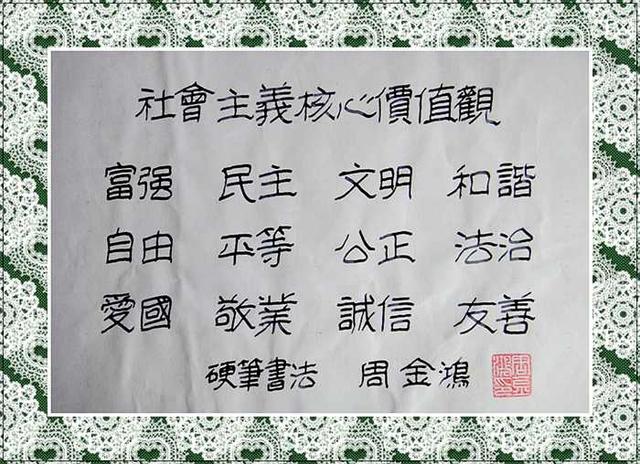 社會主義核心價值觀
富强 民主 文明 和諧
自由 平等 公正 法治
愛國 敬業 誠信 友善
硬筆書法 周金鴻